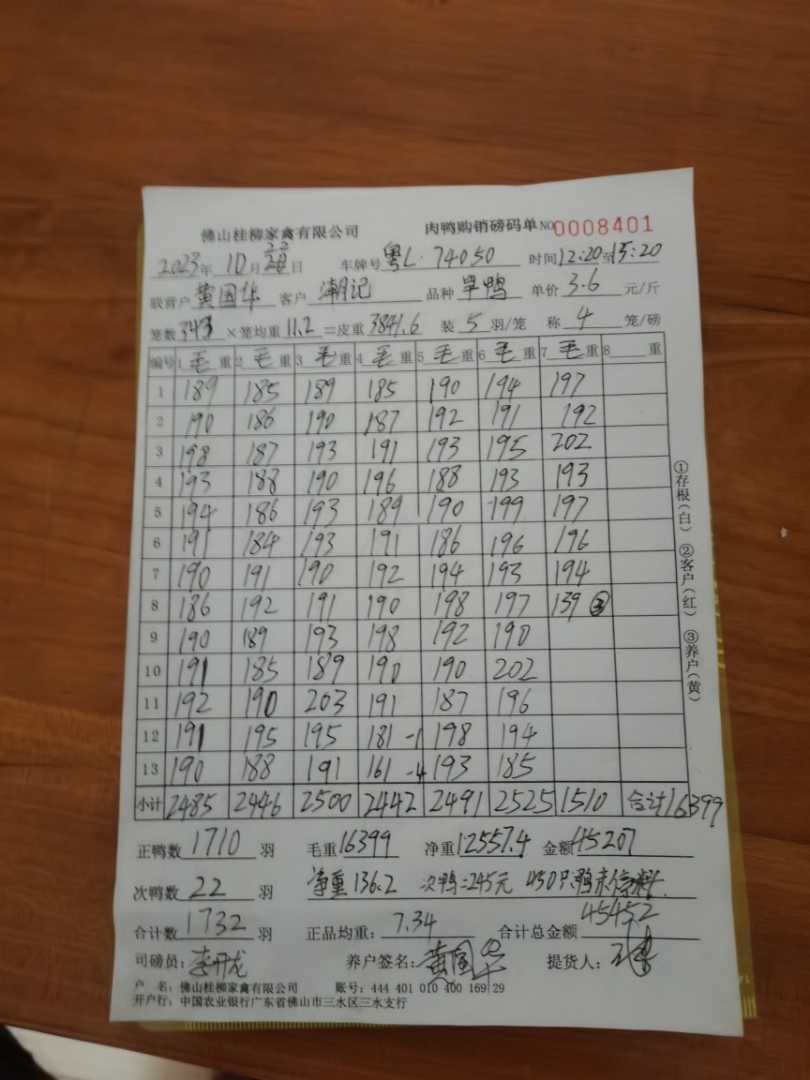 佛山桂柳家禽有限公司 肉鸭购销磅码单 NO 0008401
2023年 10月 22日 车牌号 粤L·74050 时间 12:20至15:20
联营户 黄国华 客户 潮记 品种 旱鸭 单价 3.6 元/斤
笼数 343 ×笼均重 11.2 =皮重 3841.6 装 5 羽/笼 称 4 笼/磅
编号 1 毛重 2 毛重 3 毛重 4 毛重 5 毛重 6 毛重 7 毛重 8 重
1 189 185 189 185 190 194 197
2 190 186 190 187 192 191 192
3 198 187 193 191 193 195 202
4 193 188 190 196 188 193 193
5 194 186 193 189 190 199 197
6 191 184 193 191 186 196 196
7 190 191 190 192 194 193 194
8 186 192 191 190 198 197 139 ③
9 190 189 193 198 192 190
10 191 185 189 190 190 202
11 192 190 203 191 187 196
12 191 195 195 181 -1 198 194
13 190 188 191 161 -4 193 185
小计 2485 2446 2500 2442 2491 2525 1510 合计16399
正鸭数 1710 羽 毛重 16399 净重 12557.4 金额 45207
次鸭数 22 羽 净重 136.2 次鸭=245元 450只鸭未停料
合计数 1732 羽 正品均重: 7.34 合计总金额 45452
司磅员: 李开龙 养户签名: 黄国华 提货人:
户 名: 佛山桂柳家禽有限公司 账号: 444 401 010 400 169 29
开户行: 中国农业银行广东省佛山市三水区三水支行
①存根(白) ②客户(红) ③养户(黄)